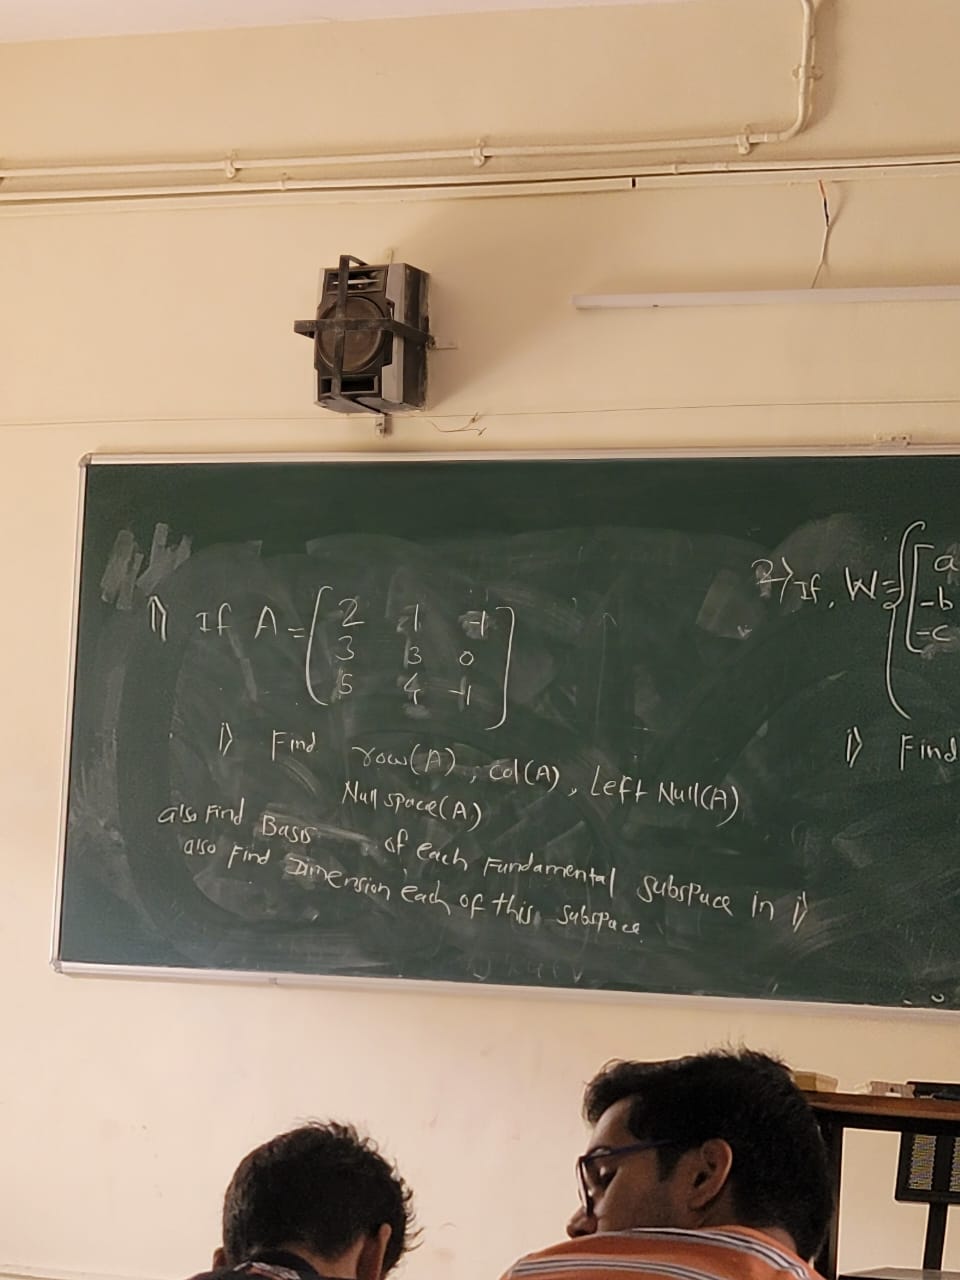 1) If A = [ 2 1 -1
3 3 0
5 4 -1 ]
i) Find row(A), col(A), Left Null(A)
Null space(A)
also Find Basis of each Fundamental subspace in i)
also Find Dimension each of this subspace.
2) If, W = { [ a
-b
-c
i) Find